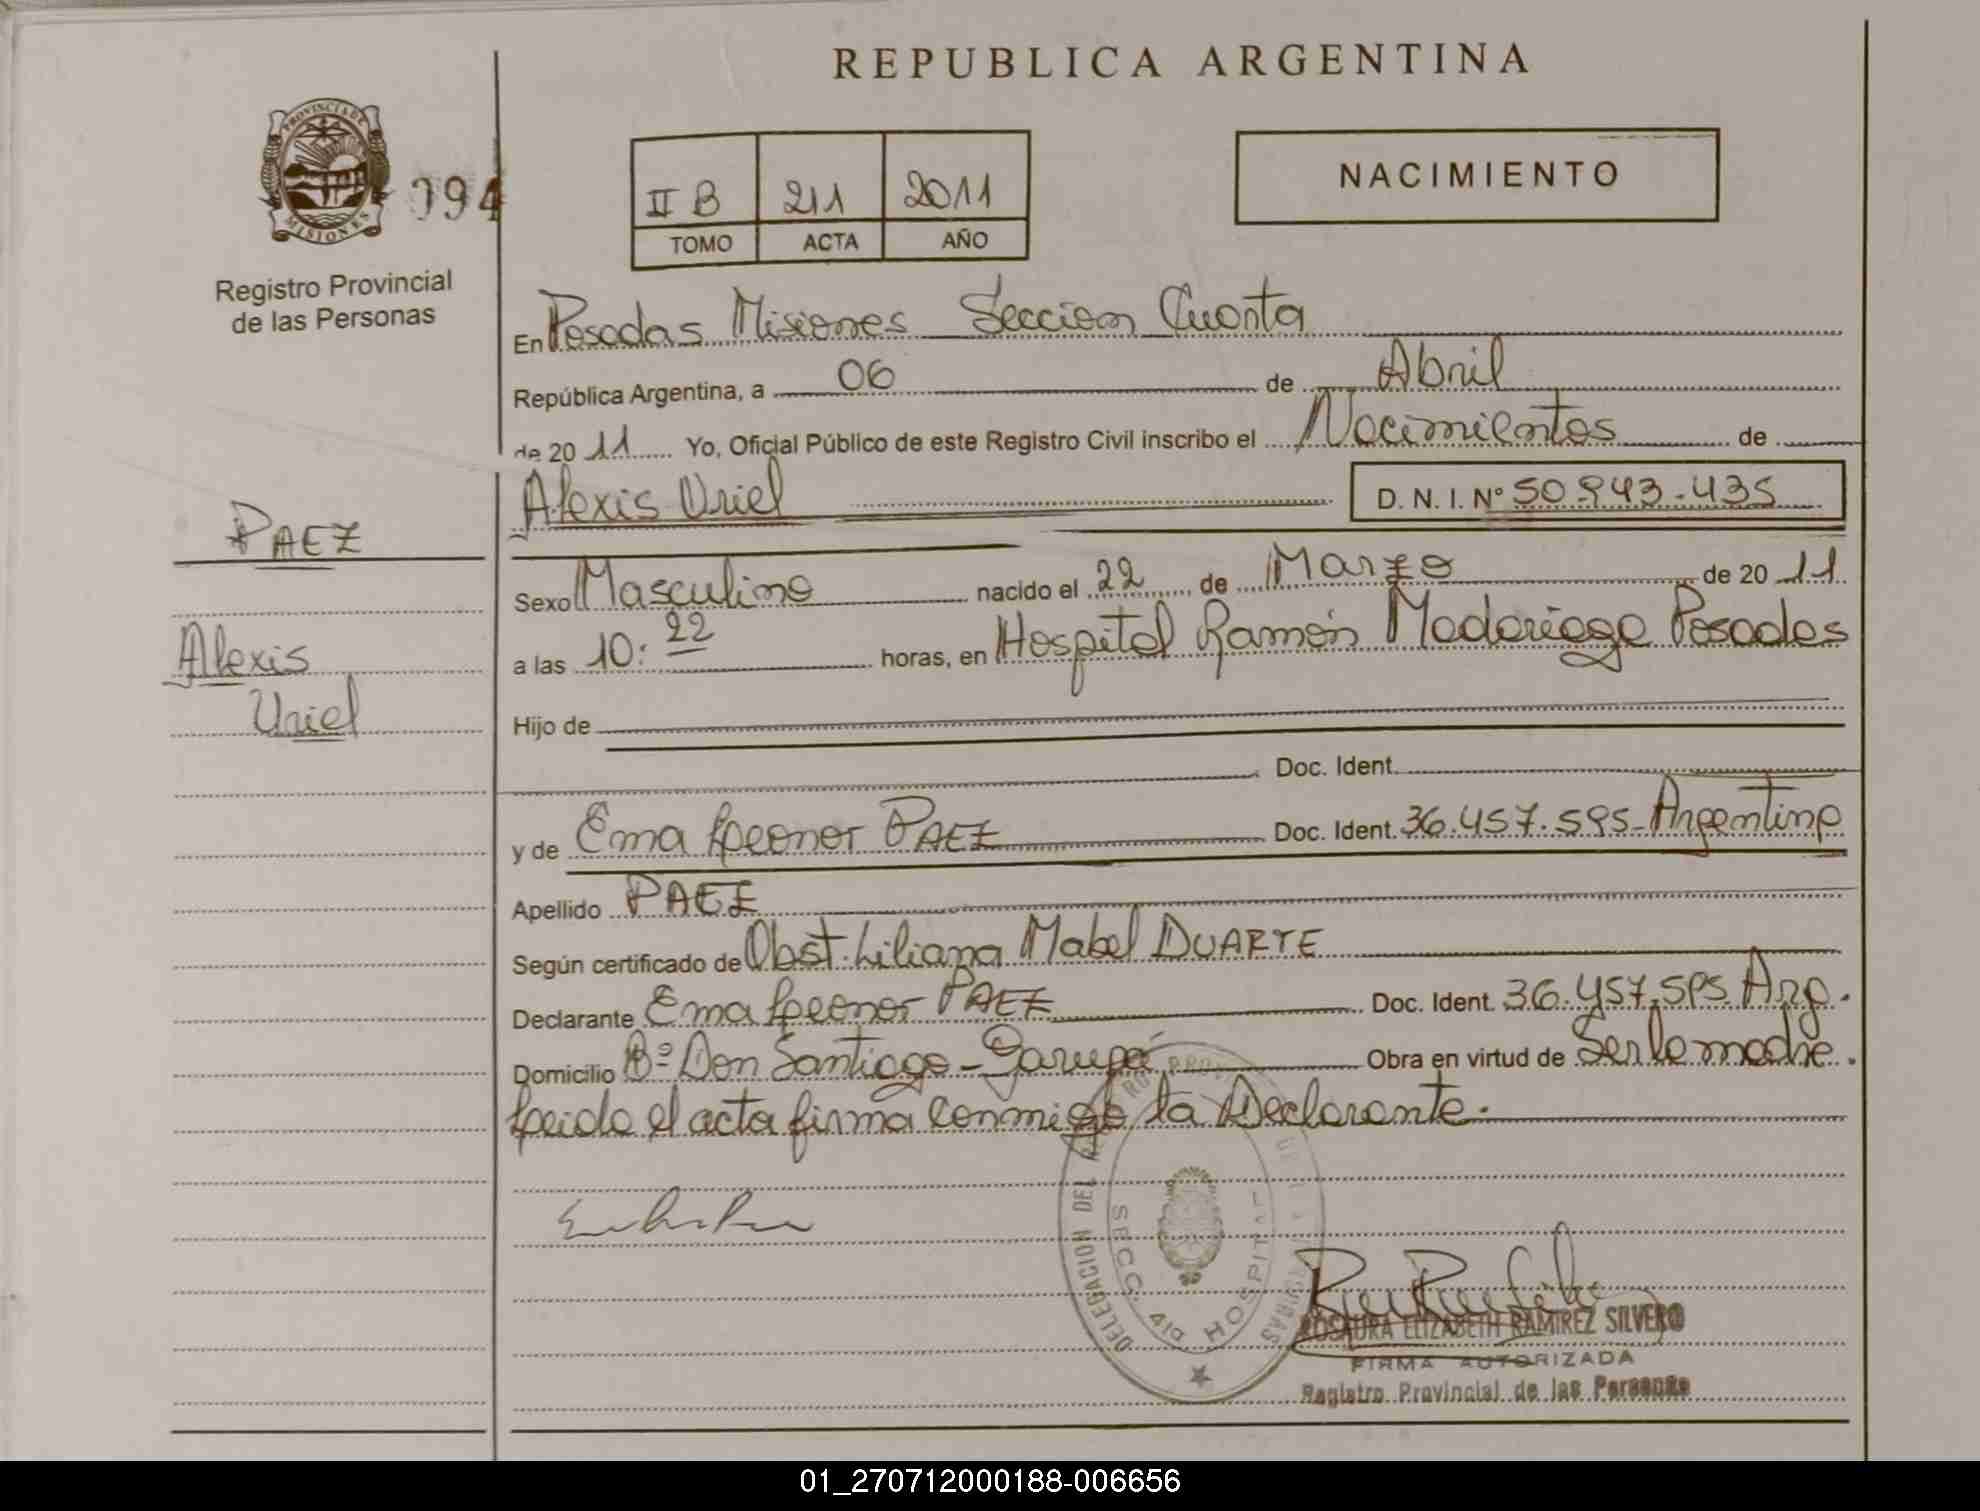 REPUBLICA ARGENTINA
PROVINCIA DE MISIONES
094
Registro Provincial
de las Personas
II B 211 2011
TOMO ACTA AÑO
NACIMIENTO
En Posadas Misiones Seccion Cuarta
República Argentina, a 06 de Abril
de 2011 Yo, Oficial Público de este Registro Civil inscribo el Nacimientos de
Alexis Uriel D. N. I. Nº 50.943.435
PAEZ
Alexis
Uriel
Sexo Masculino nacido el 22 de Marzo de 2011
a las 10:22 horas, en Hospital Ramón Madariaga Posadas
Hijo de
Doc. Ident.
y de Ema Leonor PAEZ Doc. Ident. 36.457.595 - Argentina
Apellido PAEZ
Según certificado de Obst. Liliana Mabel DUARTE
Declarante Ema Leonor PAEZ Doc. Ident. 36.457.595 Arg.
Domicilio Bº Don Santiago - Garupá Obra en virtud de Ser la madre.
Leida el acta firma conmigo la Declarante.
DELEGACION DEL
SECC. 4ta HOSPITAL
ROSAURA ELIZABETH RAMIREZ SILVERO
FIRMA AUTORIZADA
Registro Provincial de las Personas
01_270712000188-006656